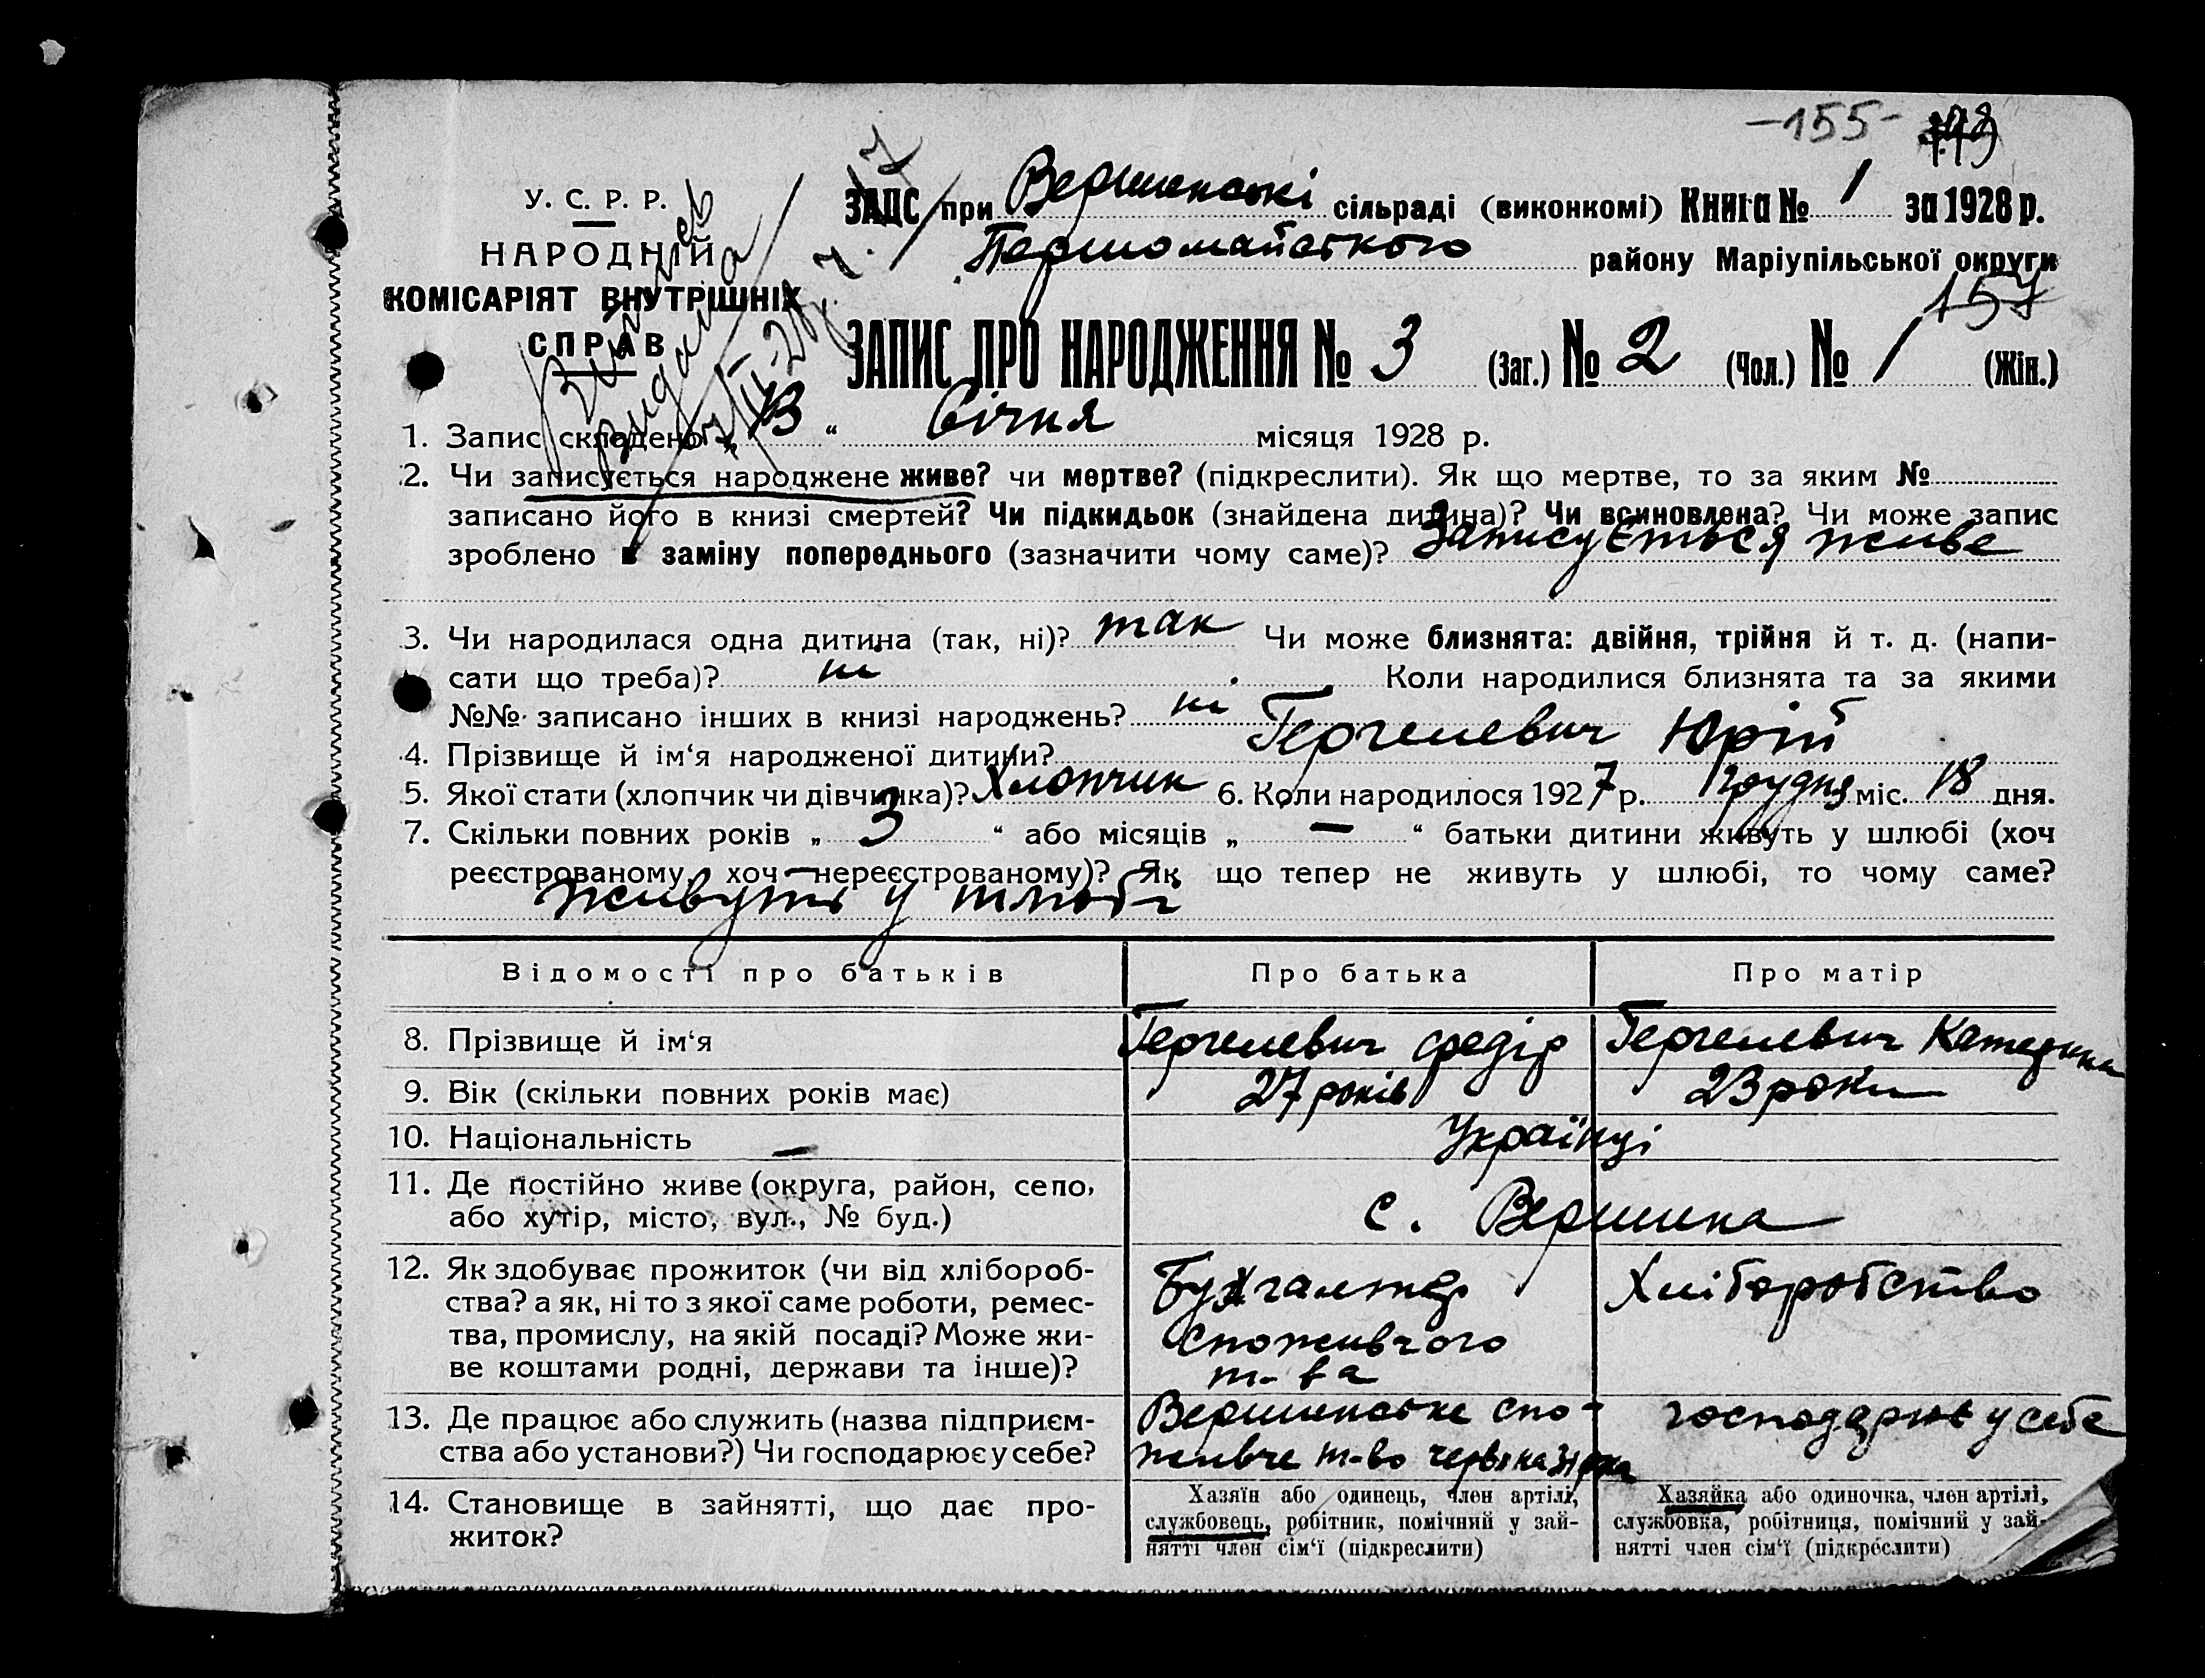 -155-
У. С. Р. Р.
НАРОДНІЙ
КОМІСАРІЯТ ВНУТРІШНІХ
СПРАВ
ЗАЦС при Вершинські сільраді (виконкомі) Книга № 1 за 1928 р.
Першомайського району Маріупільської округи
157
ЗАПИС ПРО НАРОДЖЕННЯ № 3 (Заг.) № 2 (Чол.) № 1 (Жін.)
1. Запис складено „ 13 “ Січня місяця 1928 р.
2. Чи записується народжене живе? чи мертве? (підкреслити). Як що мертве, то за яким №
записано його в книзі смертей? Чи підкидьок (знайдена дитина)? Чи всиновлена? Чи може запис
зроблено в заміну попереднього (зазначити чому саме)? Записується живе
3. Чи народилася одна дитина (так, ні)? так Чи може близнята: двійня, трійня й т. д. (напи-
сати що треба)? ні Коли народилися близнята та за якими
№№ записано інших в книзі народжень? ні
4. Прізвище й ім‘я народженої дитини? Гергелевич Юрій
5. Якої стати (хлопчик чи дівчинка)? Хлопчик 6. Коли народилося 1927 р. Грудня міс. 18 дня.
7. Скільки повних років „ 3 “ або місяців „ — “ батьки дитини живуть у шлюбі (хоч
реєстрованому, хоч нереєстрованому)? Як що тепер не живуть у шлюбі, то чому саме?
живуть у шлюбі
Відомості про батьків Про батька Про матір
8. Прізвище й ім‘я Гергелевич Федір Гергелевич Катерина
9. Вік (скільки повних років має) 27 років 23 роки
10. Національність Українці
11. Де постійно живе (округа, район, село,
або хутір, місто, вул., № буд.) с. Вершина
12. Як здобуває прожиток (чи від хлібороб-
ства? а як, ні то з якої саме роботи, ремес-
тва, промислу, на якій посаді? Може жи-
ве коштами родні, держави та інше)?
Бухгалтер
споживчого
т-ва
Хліборобство
13. Де працює або служить (назва підприєм-
ства або установи?) Чи господарює у себе?
Вершинське спо-
живче т-во червона зірка
господарює у себе
14. Становище в зайнятті, що дає про-
житок?
Хазяїн або одинець, член артілі,
службовець, робітник, помічний у зай-
нятті член сім‘ї (підкреслити)
Хазяйка або одиночка, член артілі,
службовка, робітниця, помічний у зай-
нятті член сім‘ї (підкреслити)